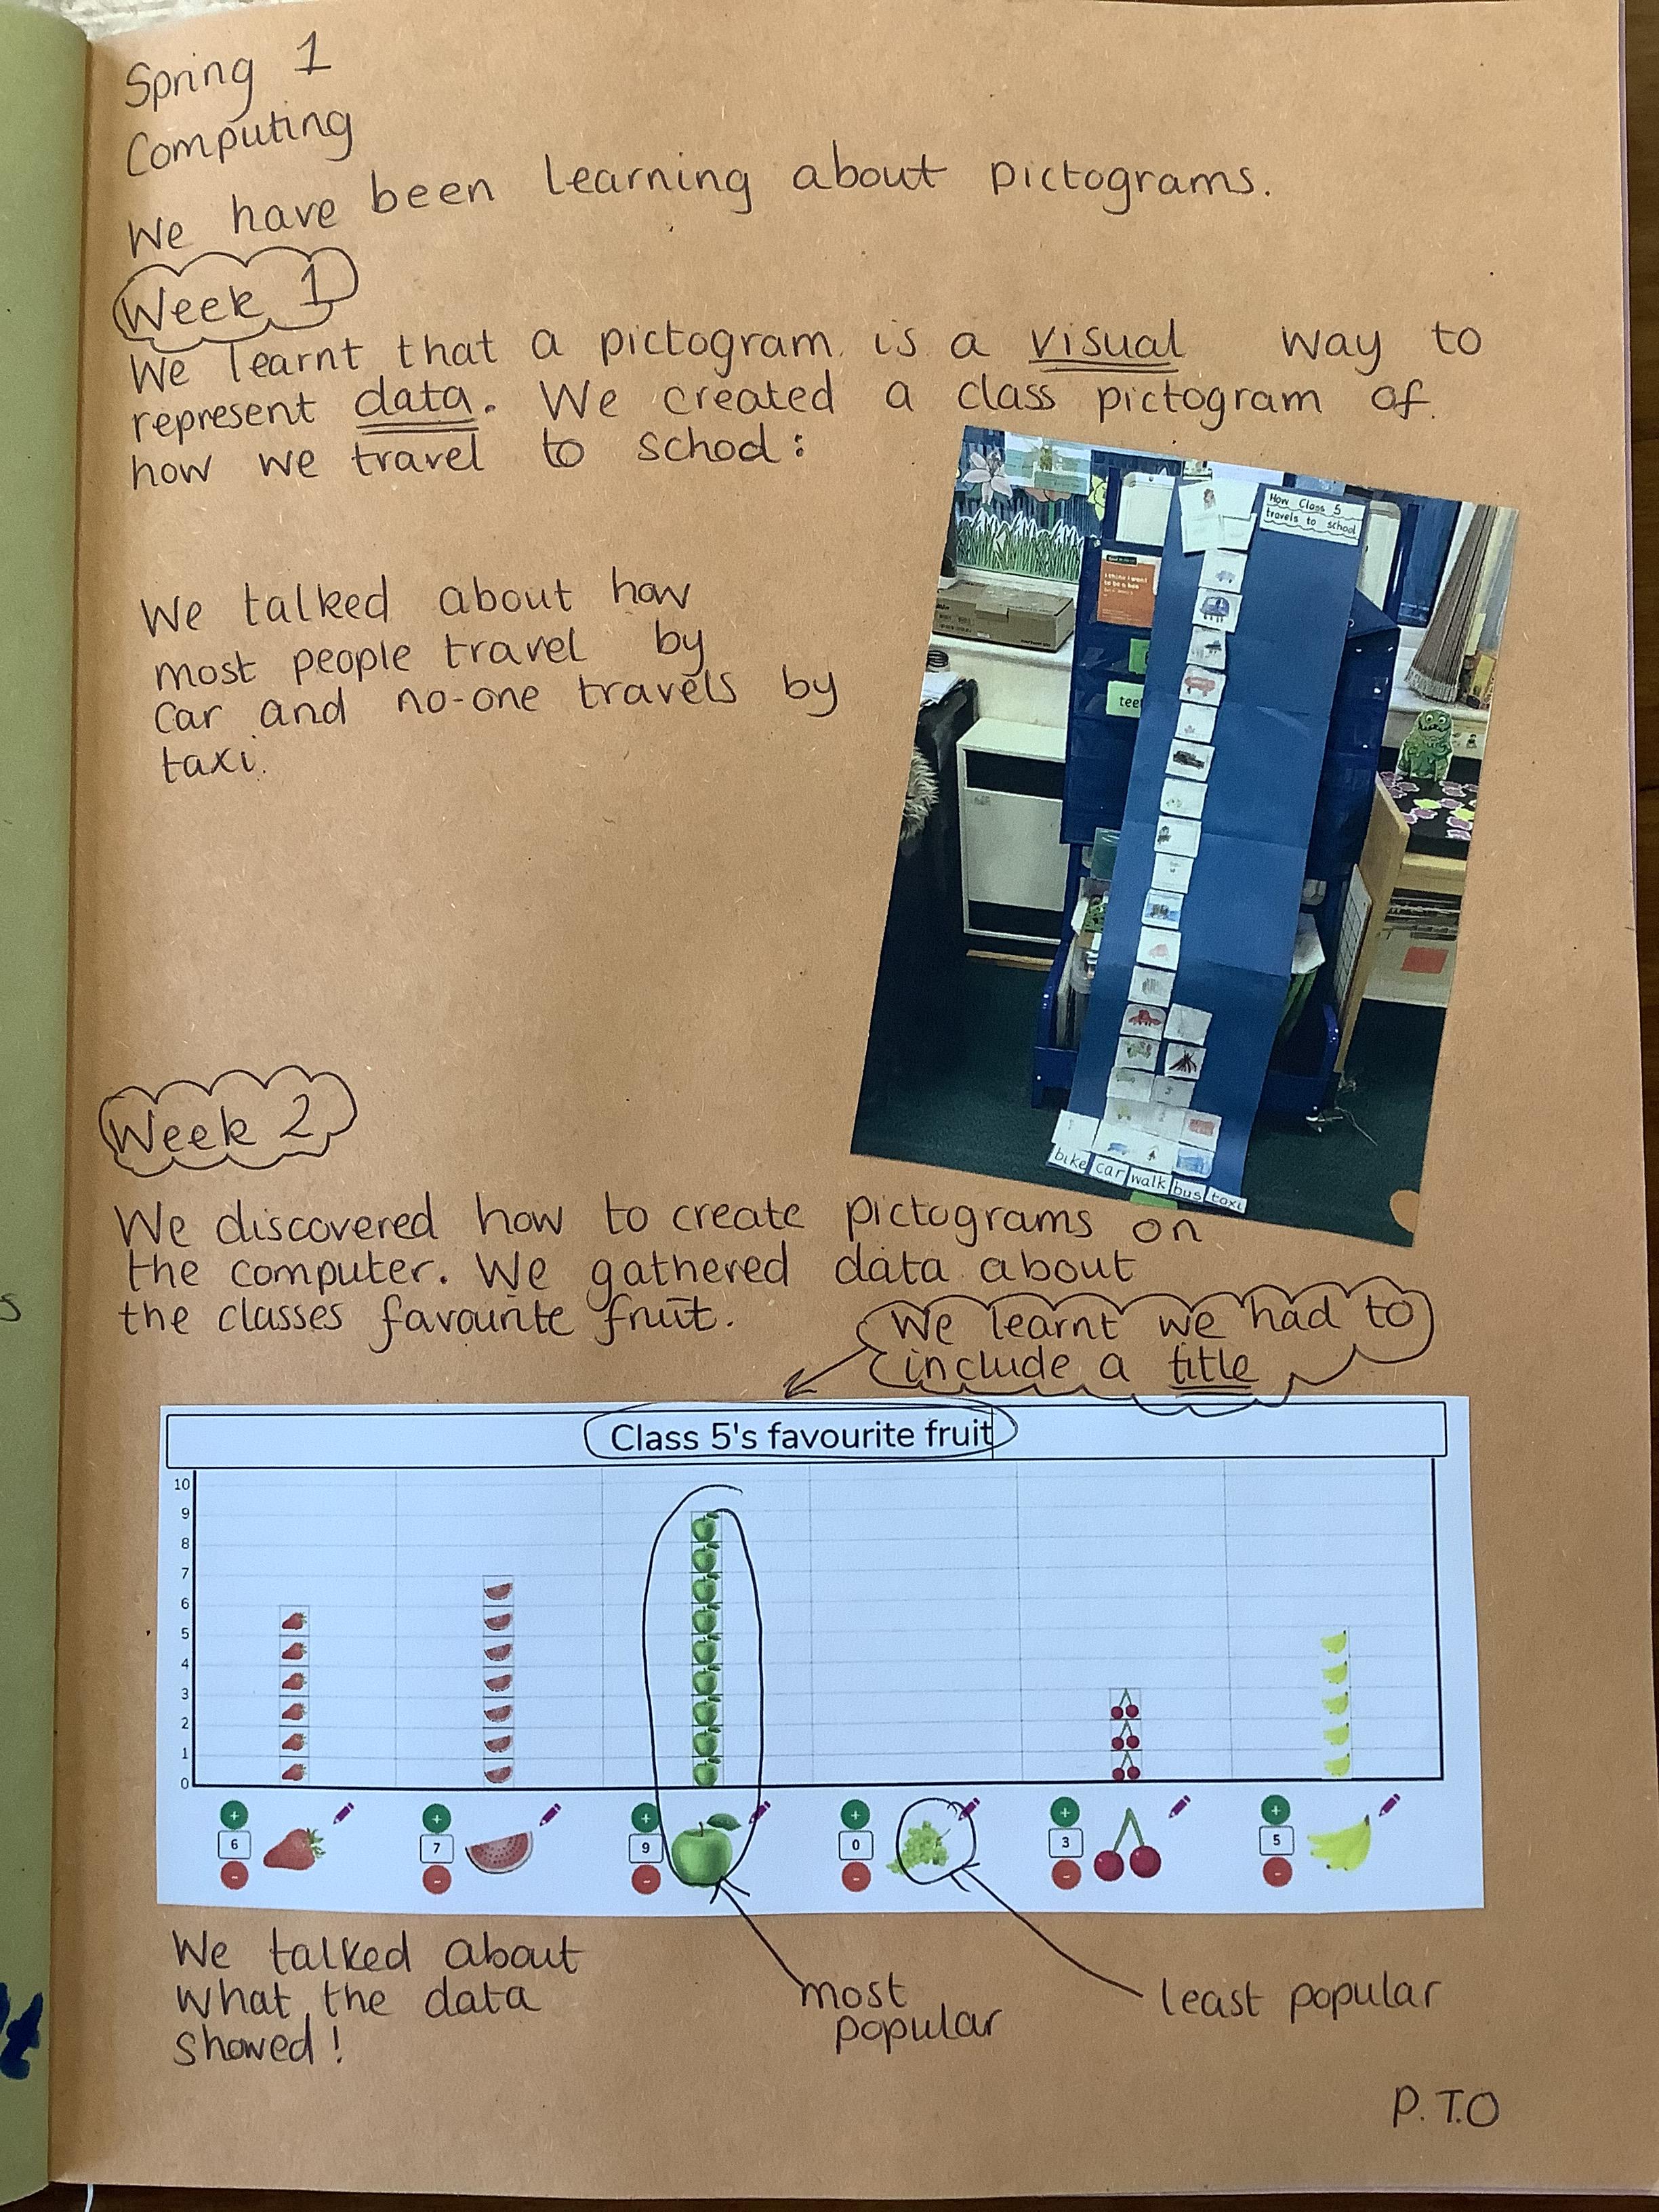 Spring 1
Computing
We have been learning about pictograms.
Week 1
We learnt that a pictogram is a visual way to
represent data. We created a class pictogram of
how we travel to school:
How Class 5
travels to school
We talked about how
most people travel by
car and no-one travels by
taxi.
bike car walk bus taxi
Week 2
We discovered how to create pictograms on
the computer. We gathered data about
the classes favourite fruit.
We learnt we had to
include a title
Class 5's favourite fruit
10
9
8
7
6
5
4
3
2
1
0
+ + + + + +
6 7 9 0 3 5
- - - - - -
We talked about
what the data
showed!
most
popular
least popular
P.T.O